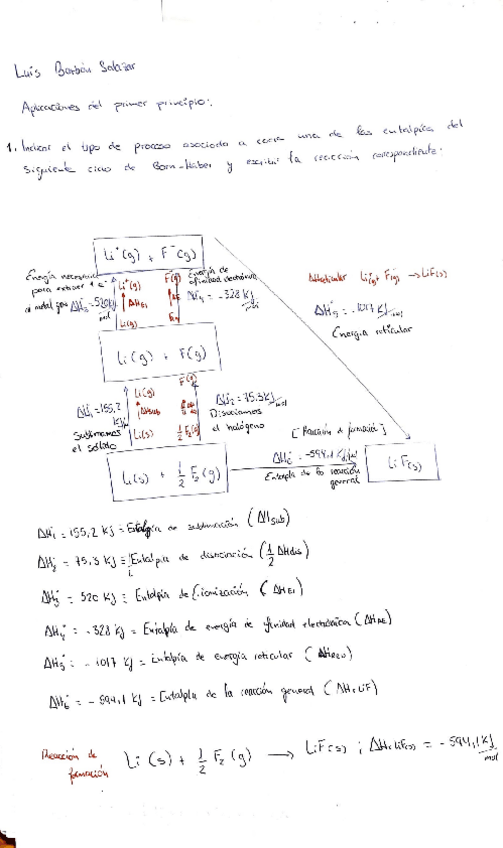 Luis Borbón Salazar
Aplicaciones del primer principio:
1. Indicar el tipo de proceso asociado a cada una de las entalpías del
siguiente ciclo de Born-Haber y escribir la reacción correspondiente:
Li⁺(g) + F⁻(g)
Energía necesaria
para extraer 1 e⁻
al metal gas ΔH°₃ = 520 kJ
Li⁺(g)
ΔHEI
Li(g)
F⁻(g)
F(g)
Energía de
afinidad electrónica
ΔH°₄ = -328 kJ/mol
ΔHreticular Li⁺(g) + F⁻(g) → LiF(s)
ΔH°₅ = -1017 kJ/mol
Energía reticular
Li(g) + F(g)
ΔH°₁ = 155,2 kJ/
Sublimamos
el sólido
Li(g)
ΔHsub
Li(s)
F(g)
½ F₂(g)
ΔH°₂ = 75.3 kJ/mol
Disociamos
el halógeno
[Reacción de formación]
ΔH°₆ = -594,1 kJ/mol
Entalpía de la reacción
general
Li(s) + ½ F₂(g)
LiF(s)
ΔH°₁ = 155,2 kJ = Entalpía de sublimación (ΔHsub)
ΔH°₂ = 75,3 kJ = Entalpía de disociación (½ ΔHdis)
ΔH°₃ = 520 kJ = Entalpía de ionización (ΔHEI)
ΔH°₄ = -328 kJ = Entalpía de energía de afinidad electrónica (ΔHAE)
ΔH°₅ = -1017 kJ = Entalpía de energía reticular
ΔH°₆ = -594,1 kJ = Entalpía de la reacción general (ΔHf LiF)
Reacción de
formación
Li(s) + ½ F₂(g) → LiF(s) ; ΔHf LiF(s) = -594,1 kJ/mol